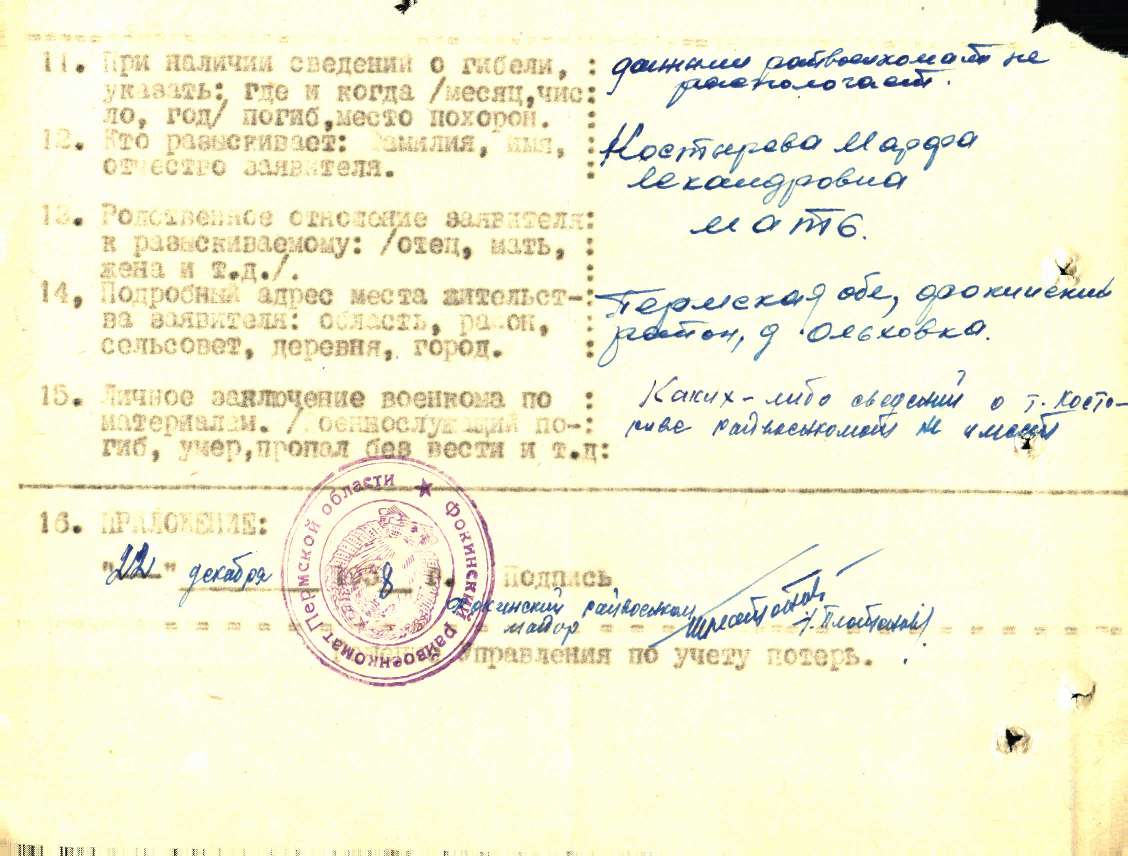 11. При наличии сведений о гибели, : данными райвоенкомат не
указать: где и когда /месяц,чис: распологает.
ло, год/ погиб,место похорон. :
12. Кто разыскивает: Фамилия, имя, : Костырева Марфа
отчество заявителя. : лександровна
13. Родственное отношение заявителя: мать.
к разыскиваемому: /отец, мать, :
жена и т.д./. :
14, Подробный адрес места жительст-: Пермская обл, Фокинский
ва заявителя: область, район, : район, д Ольховка.
сельсовет, деревня, город. :
15. Личное заключение военкома по : Каких-либо сведений о т. Косты-
материалам. /Военнослужащий по-: реве райвоенкомат не имеет
гиб, умер,пропал без вести и т.д:
16. ПРИЛОЖЕНИЕ:
"22" декабря 1958 г. Подпись
Фокинский райвоенком
майор /Плотников/
Управления по учету потерь.
Фокинский райвоенкомат Пермской области